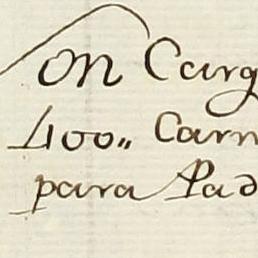 on Carg
400,, Carn
para Pad